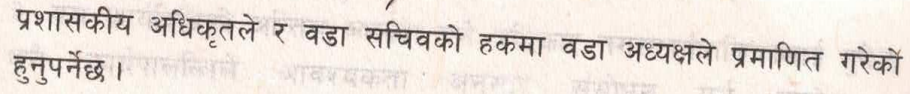 प्रशासकीय अधिकृतले र वडा सचिवको हकमा वडा अध्यक्षले प्रमाणित गरेको
हुनुपर्नेछ ।